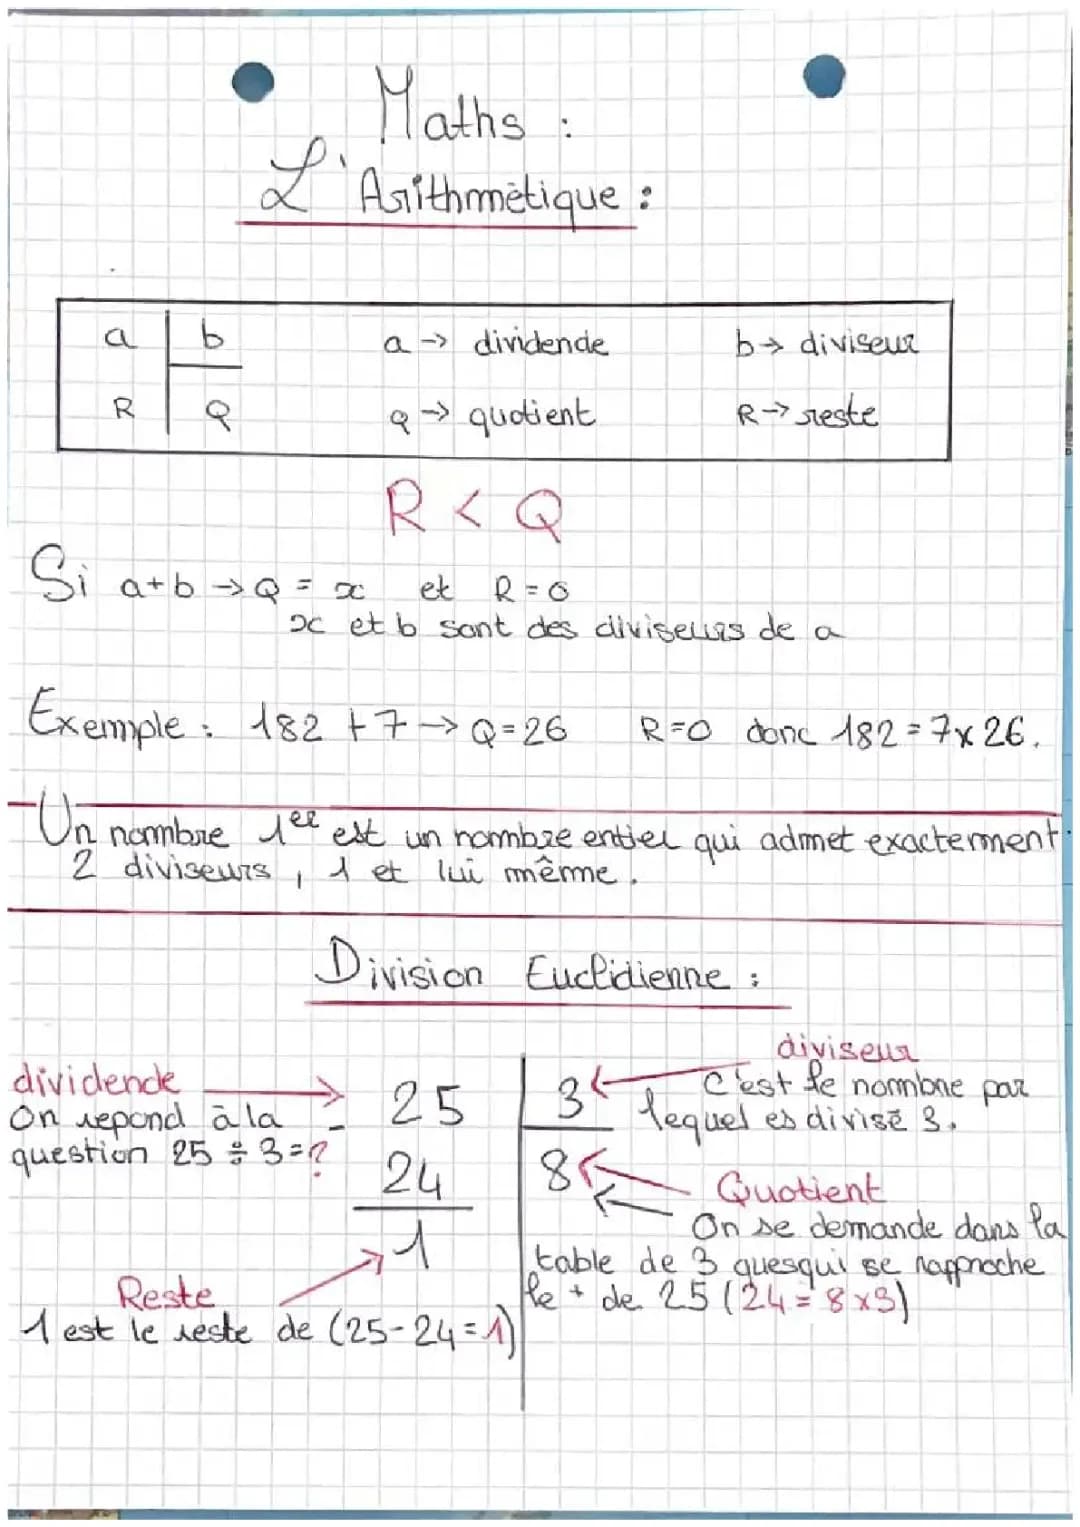 Maths :
L'Arithmétique :
a b a -> dividende b -> diviseur
R Q Q -> quotient R -> reste
R < Q
Si a+b -> Q = x et R = 0
x et b sont des diviseurs de a
Exemple : 182 + 7 -> Q = 26 R=0 donc 182 = 7x26.
Un nombre 1er est un nombre entier qui admet exactement
2 diviseurs, 1 et lui même.
Division Euclidienne :
dividende
On repond à la
question 25 ÷ 3 = ?
- 25
24
1
Reste
1 est le reste de (25-24=1)
3
8
diviseur
C'est le nombre par
lequel es divisé 3.
Quotient
On se demande dans la
table de 3 quesqui se rapproche
le + de 25 (24 = 8x3)